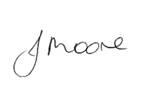 J Moore